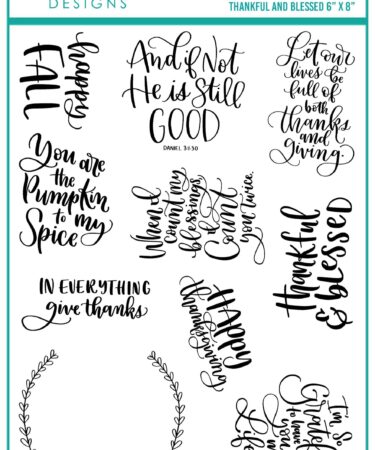 DESIGNS
THANKFUL AND BLESSED 6" X 8"
happy
FALL
And if Not
He is Still
GOOD
DANIEL 3:
Let our
lives be
full of
both
thanks
and
giving.
You are
the
Pumpkin
to my
Spice
When I
count my
blessings,
I
Count
you twice.
thankful
& blessed
IN EVERYTHING
give thanks
HAPPY
thanksgiving
I'm So
Grateful
to have
you in
Life